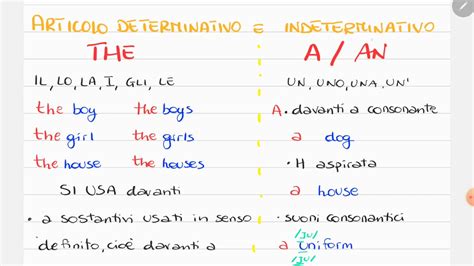 ARTICOLO DETERMINATIVO E INDETERMINATIVO
THE
IL, LO, LA, I, GLI, LE
the boy the boys
the girl the girls
the house the houses
SI USA davanti
• a sostantivi usati in senso
definito, cioè davanti a
A / AN
UN, UNO, UNA, UN'
A • davanti a consonante
a dog
• H aspirata
a house
• suoni consonantici
/JU/
a uniform
/JU/